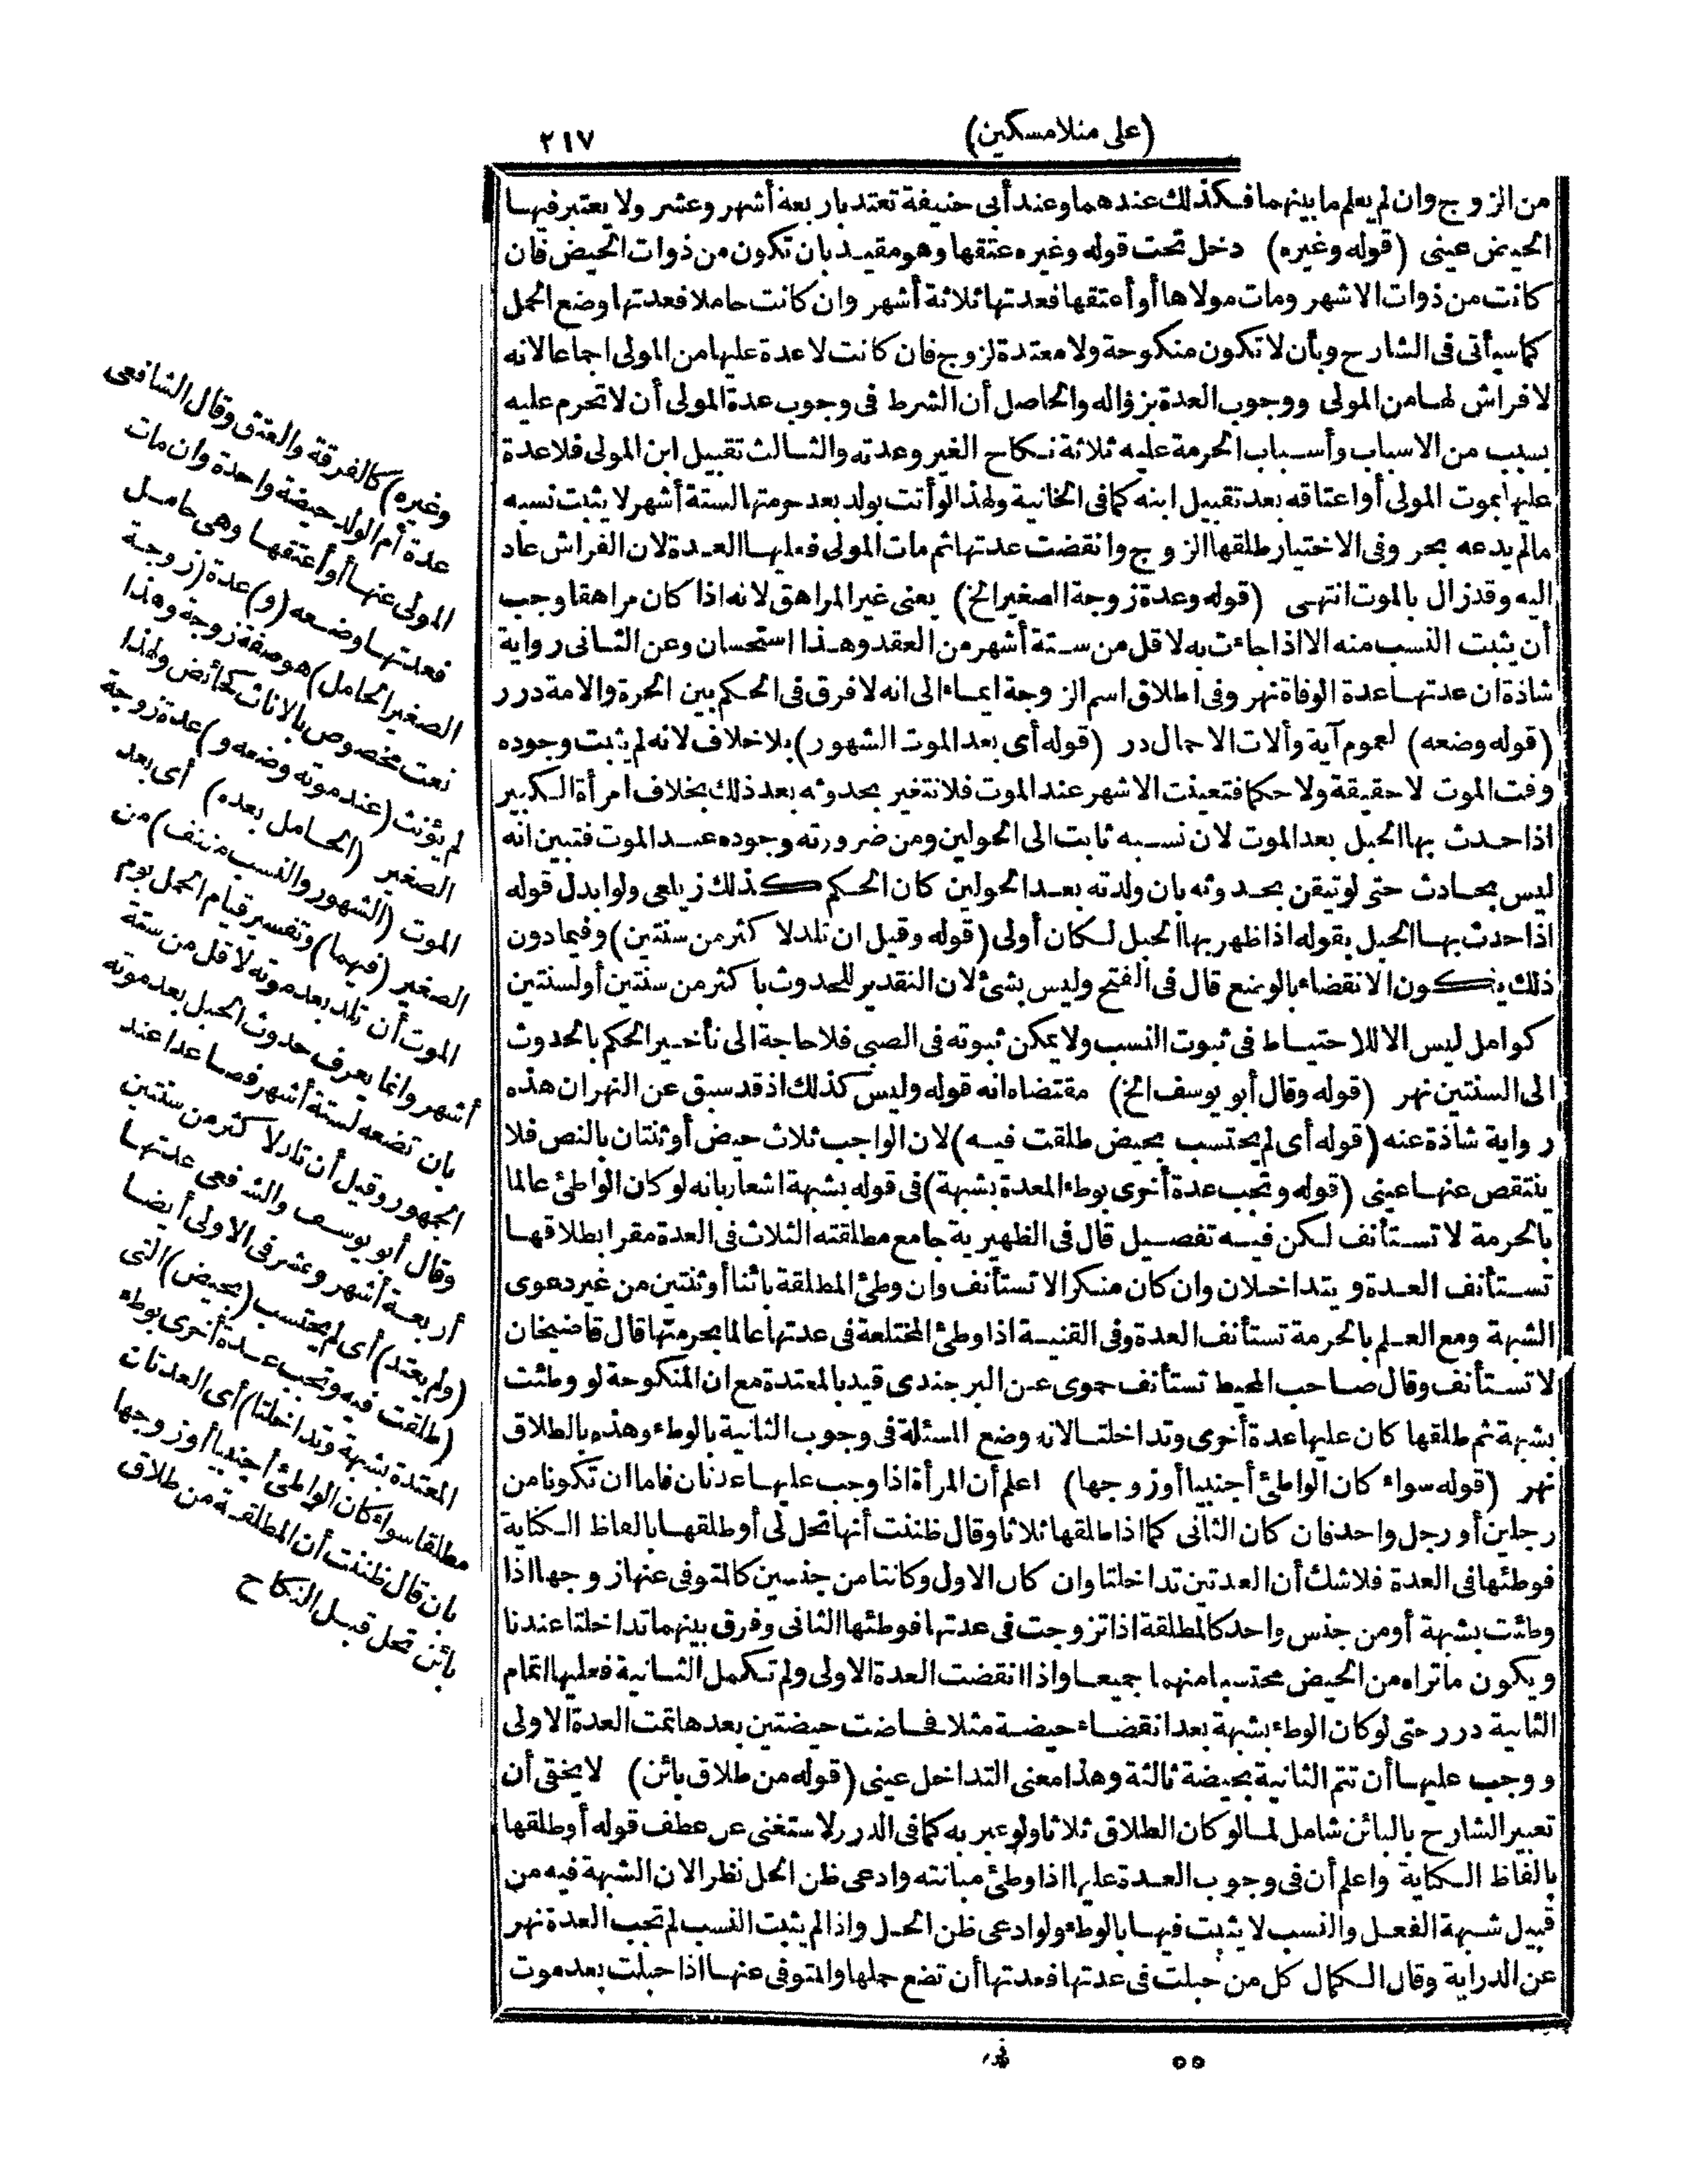 (على منلامسكين)
٢١٧
من الزوج وان لم يعلم ما بينهما فكذلك عندهما وعند أبى حنيفة تعتد باربعة أشهر وعشر ولا يعتبر فيها
الحيض عينى (قوله وغيره) دخل تحت قوله وغيره عتقها وهو مقيد بان تكون من ذوات الحيض فان
كانت من ذوات الاشهر ومات مولاها أو أعتقها فعدتها ثلاثة أشهر وان كانت حاملا فعدتها وضع الحمل
كما سيأتى فى الشارح وبأن لا تكون منكوحة ولا معتدة لزوج فان كانت لا عدة عليها من المولى اجماعا لانه
لا فراش لها من المولى ووجوب العدة بزواله والحاصل أن الشرط فى وجوب عدة المولى أن لا تحرم عليه
بسبب من الاسباب وأسباب الحرمة عليه ثلاثة نكاح الغير وعدته والثالث تقبيل ابن المولى فلا عدة
عليها بموت المولى أو اعتاقه بعد تقبيل ابنه كما فى الخانية ولهذا لو أتت بولد بعد حرمتها لستة أشهر لا يثبت نسبه
مالم يدعه بحر وفى الاختيار طلقها الزوج وانقضت عدتها ثم مات المولى فعليها العدة لان الفراش عاد
اليه وقد زال بالموت انتهى (قوله وعدة زوجة الصغير الخ) يعنى غير المراهق لانه اذا كان مراهقا وجب
أن يثبت النسب منه الا اذا جاءت به لاقل من ستة أشهر من العقد وهذا استحسان وعن الثانى رواية
شاذة ان عدتها عدة الوفاة نهر وفى اطلاق اسم الزوجة ايماء الى انه لا فرق فى الحكم بين الحرة والامة درر
(قوله وضعه) لعموم آية وألات الاحمال در (قوله أى بعد الموت الشهور) بلا خلاف لانه لم يثبت وجوده
وقت الموت لا حقيقة ولا حكما فتعينت الاشهر عند الموت فلا تتغير بحدوثه بعد ذلك بخلاف امرأة الكبير
اذا حدث بها الحبل بعد الموت لان نسبه ثابت الى الحولين ومن ضرورته وجوده عند الموت فتبين انه
ليس بحادث حتى لو تيقن بحدوثه بان ولدته بعد الحولين كان الحكم كذلك زيلعى ولو ابدل قوله
اذا حدث بها الحبل بقوله اذا ظهر بها الحبل لكان أولى (قوله وقيل ان تلد لا كثر من سنتين) وفيما دون
ذلك يكون الانقضاء بالوضع قال فى الفتح وليس بشئ لان التقدير للحدوث با كثر من سنتين أو لسنتين
كوامل ليس الا للاحتياط فى ثبوت النسب ولا يمكن ثبوته فى الصبى فلا حاجة الى تأخير الحكم بالحدوث
الى السنتين نهر (قوله وقال أبو يوسف الخ) مقتضاه انه قوله وليس كذلك اذ قد سبق عن النهر ان هذه
رواية شاذة عنه (قوله أى لم يحتسب بحيض طلقت فيه) لان الواجب ثلاث حيض أو ثنتان بالنص فلا
ينتقص عنها عينى (قوله وتجب عدة أخرى بوطء المعدة بشبهة) فى قوله بشبهة اشعار بانه لو كان الواطئ عالما
بالحرمة لا تستأنف لكن فيه تفصيل قال فى الظهيرية جامع مطلقته الثلاث فى العدة مقرا بطلاقها
تستأنف العدة ويتداخلان وان كان منكرا لا تستأنف وان وطئ المطلقة بائنا أو ثنتين من غير دعوى
الشبهة ومع العلم بالحرمة تستأنف العدة وفى القنية اذا وطئ المختلعة فى عدتها عالما بحرمتها قال قاضيخان
لا تستأنف وقال صاحب المحيط تستأنف حموى عن البرجندى قيد بالمعتدة مع ان المنكوحة لو وطئت
بشبهة ثم طلقها كان عليها عدة أخرى وتداخلتا لانه وضع المسئلة فى وجوب الثانية بالوطء وهذه بالطلاق
نهر (قوله سواء كان الواطئ أجنبيا أو زوجها) اعلم أن المرأة اذا وجب عليها عدتان فاما ان تكونا من
رجلين أو رجل واحد فان كان الثانى كما اذا طلقها ثلاثا وقال ظننت أنها تحل لى أو طلقها بالفاظ الكناية
فوطئها فى العدة فلا شك أن العدتين تداخلتا وان كان الاول وكانتا من جنسين كالمتوفى عنها زوجها اذا
وطئت بشبهة أو من جنس واحد كالمطلقة اذا تزوجت فى عدتها فوطئها الثانى وفرق بينهما تداخلتا عندنا
ويكون ماتراه من الحيض محتسبا منهما جميعا واذا انقضت العدة الاولى ولم تكمل الثانية فعليها اتمام
الثانية درر حتى لو كان الوطء بشبهة بعد انقضاء حيضة مثلا فحاضت حيضتين بعدها تمت العدة الاولى
ووجب عليها أن تتم الثانية بحيضة ثالثة وهذا معنى التداخل عينى (قوله من طلاق بائن) لا يخفى أن
تعبير الشارح بالبائن شامل لما لو كان الطلاق ثلاثا ولو عبر به كما فى الدرر لاستغنى عن عطف قوله أو طلقها
بالفاظ الكناية واعلم أن فى وجوب العدة عليها اذا وطئ مبانته وادعى ظن الحل نظرا لان الشبهة فيه من
قبيل شبهة الفعل والنسب لا يثبت فيها بالوطء ولو ادعى ظن الحل واذا لم يثبت النسب لم تجب العدة نهر
عن الدراية وقال الكمال كل من حبلت فى عدتها فعدتها أن تضع حملها والمتوفى عنها اذا حبلت بعد موت
وغيره) كالفرقة والعتق وقال الشافعى
عدة أم الولد حيضة واحدة وان مات
المولى عنها أو أعتقها وهى حامل
فعدتها وضعه (و) عدة (زوجة
الصغير الحامل) هو صفة زوجة وهذا
نعت مخصوص بالاناث كحائض ولهذا
لم يؤنث (عند موته وضعه و) عدة زوجة
الصغير (الحامل بعده) أى بعد
الموت (الشهور والنسب منتف) من
الصغير (فيهما) وتفسير قيام الحمل يوم
الموت أن تلد بعد موته لاقل من ستة
أشهر وانما يعرف حدوث الحبل بعد موته
بان تضعه لستة أشهر فصاعدا عند
الجمهور وقيل أن تلد لا كثر من سنتين
وقال أبو يوسف والشافعى عدتها
أربعة أشهر وعشر فى الاولى أيضا
(ولم يعتد) أى لم يحتسب (بحيض) التى
(طلقت فيه وتجب عدة أخرى بوطء
المعتدة بشبهة وتداخلتا) أى العدتان
مطلقا سواء كان الواطئ أجنبيا أو زوجها
بان قال ظننت أن المطلقة من طلاق
بائن تحل قبل النكاح
٥٥